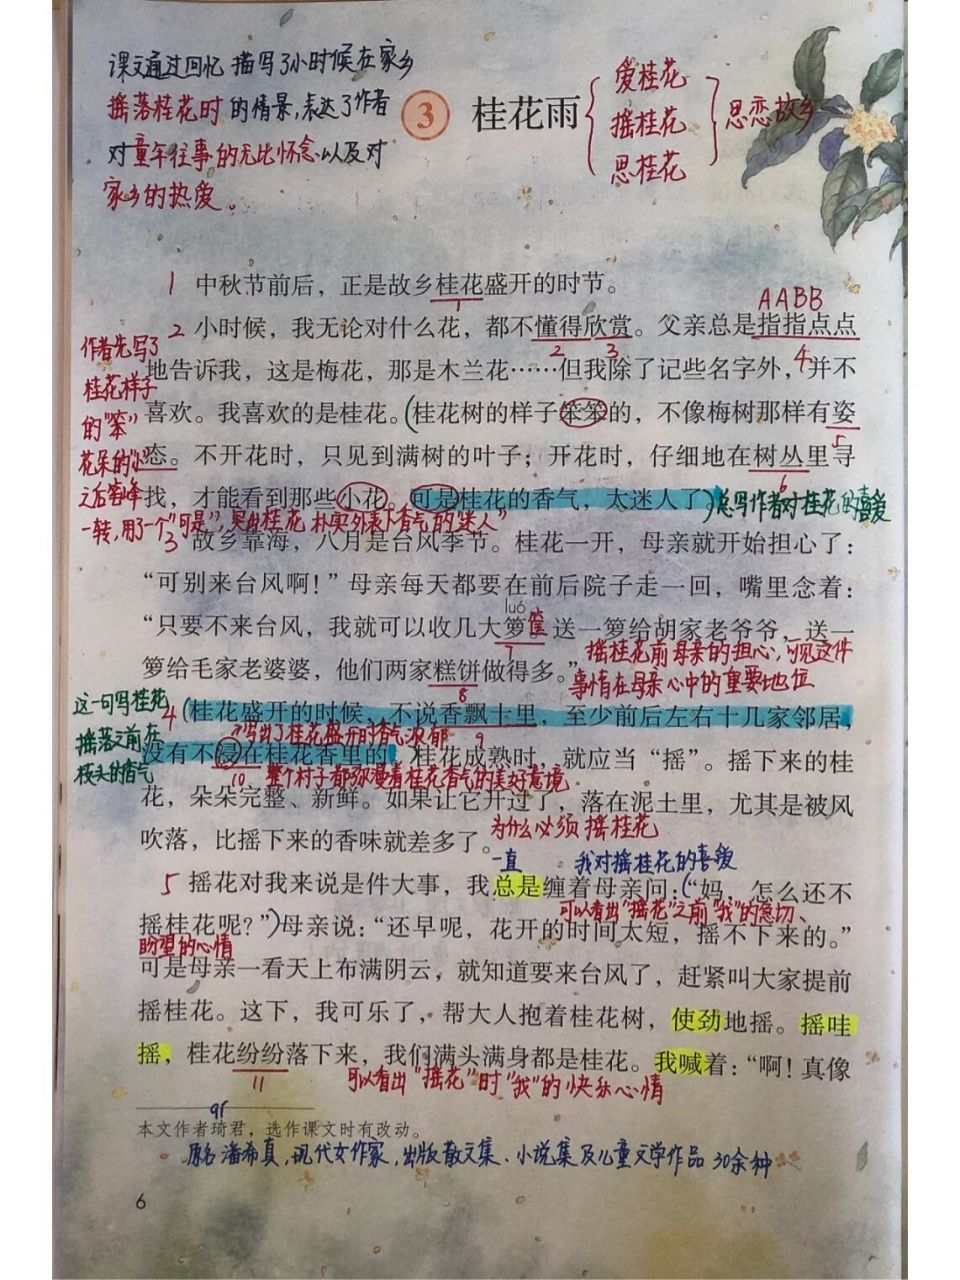 课文通过回忆描写了小时候在家乡
摇落桂花时的情景,表达了作者
对童年往事的无比怀念以及对
家乡的热爱。
3 桂花雨
爱桂花
摇桂花
思桂花
思恋故乡
1 中秋节前后，正是故乡桂花盛开的时节。
1
AABB
2 小时候，我无论对什么花，都不懂得欣赏。父亲总是指指点点
2 3 4
地告诉我，这是梅花，那是木兰花……但我除了记些名字外，并不
喜欢。我喜欢的是桂花。(桂花树的样子笨笨的，不像梅树那样有姿
5
态。不开花时，只见到满树的叶子；开花时，仔细地在树丛里寻
6
找，才能看到那些小花。可是桂花的香气，太迷人了。)
总写作者对桂花的喜爱
作者先写了
桂花样子
的"笨"
花朵的"小"
之后笔峰
一转,用了一个"可是",突出桂花朴实外表下香气的"迷人"
3 故乡靠海，八月是台风季节。桂花一开，母亲就开始担心了：
“可别来台风啊！”母亲每天都要在前后院子走一回，嘴里念着：
luó
“只要不来台风，我就可以收几大箩筐 送一箩给胡家老爷爷，送一
7
箩给毛家老婆婆，他们两家糕饼做得多。”
8
摇桂花前母亲的担心,可见这件
事情在母亲心中的重要地位
这一句写桂花
摇落之前在
枝头的香气
4 (桂花盛开的时候，不说香飘十里，至少前后左右十几家邻居，
9
写出了桂花盛开时香气浓郁
没有不浸在桂花香里的 桂花成熟时，就应当“摇”。摇下来的桂
10
整个村子都弥漫着桂花香气的美好意境
花，朵朵完整、新鲜。如果让它开过了，落在泥土里，尤其是被风
吹落，比摇下来的香味就差多了。
为什么必须摇桂花
一直
我对摇桂花的喜爱
5 摇花对我来说是件大事，我总是缠着母亲问：(“妈，怎么还不
可以看出"摇花"之前"我"的急切、
摇桂花呢？”)母亲说：“还早呢，花开的时间太短，摇不下来的。”
盼望的心情
可是母亲一看天上布满阴云，就知道要来台风了，赶紧叫大家提前
摇桂花。这下，我可乐了，帮大人抱着桂花树，使劲地摇。摇哇
摇，桂花纷纷落下来，我们满头满身都是桂花。我喊着：“啊！真像
11
可以看出"摇花"时"我"的快乐心情
本文作者琦君，选作课文时有改动。
原名潘希真,现代女作家,出版散文集、小说集及儿童文学作品30余种
6